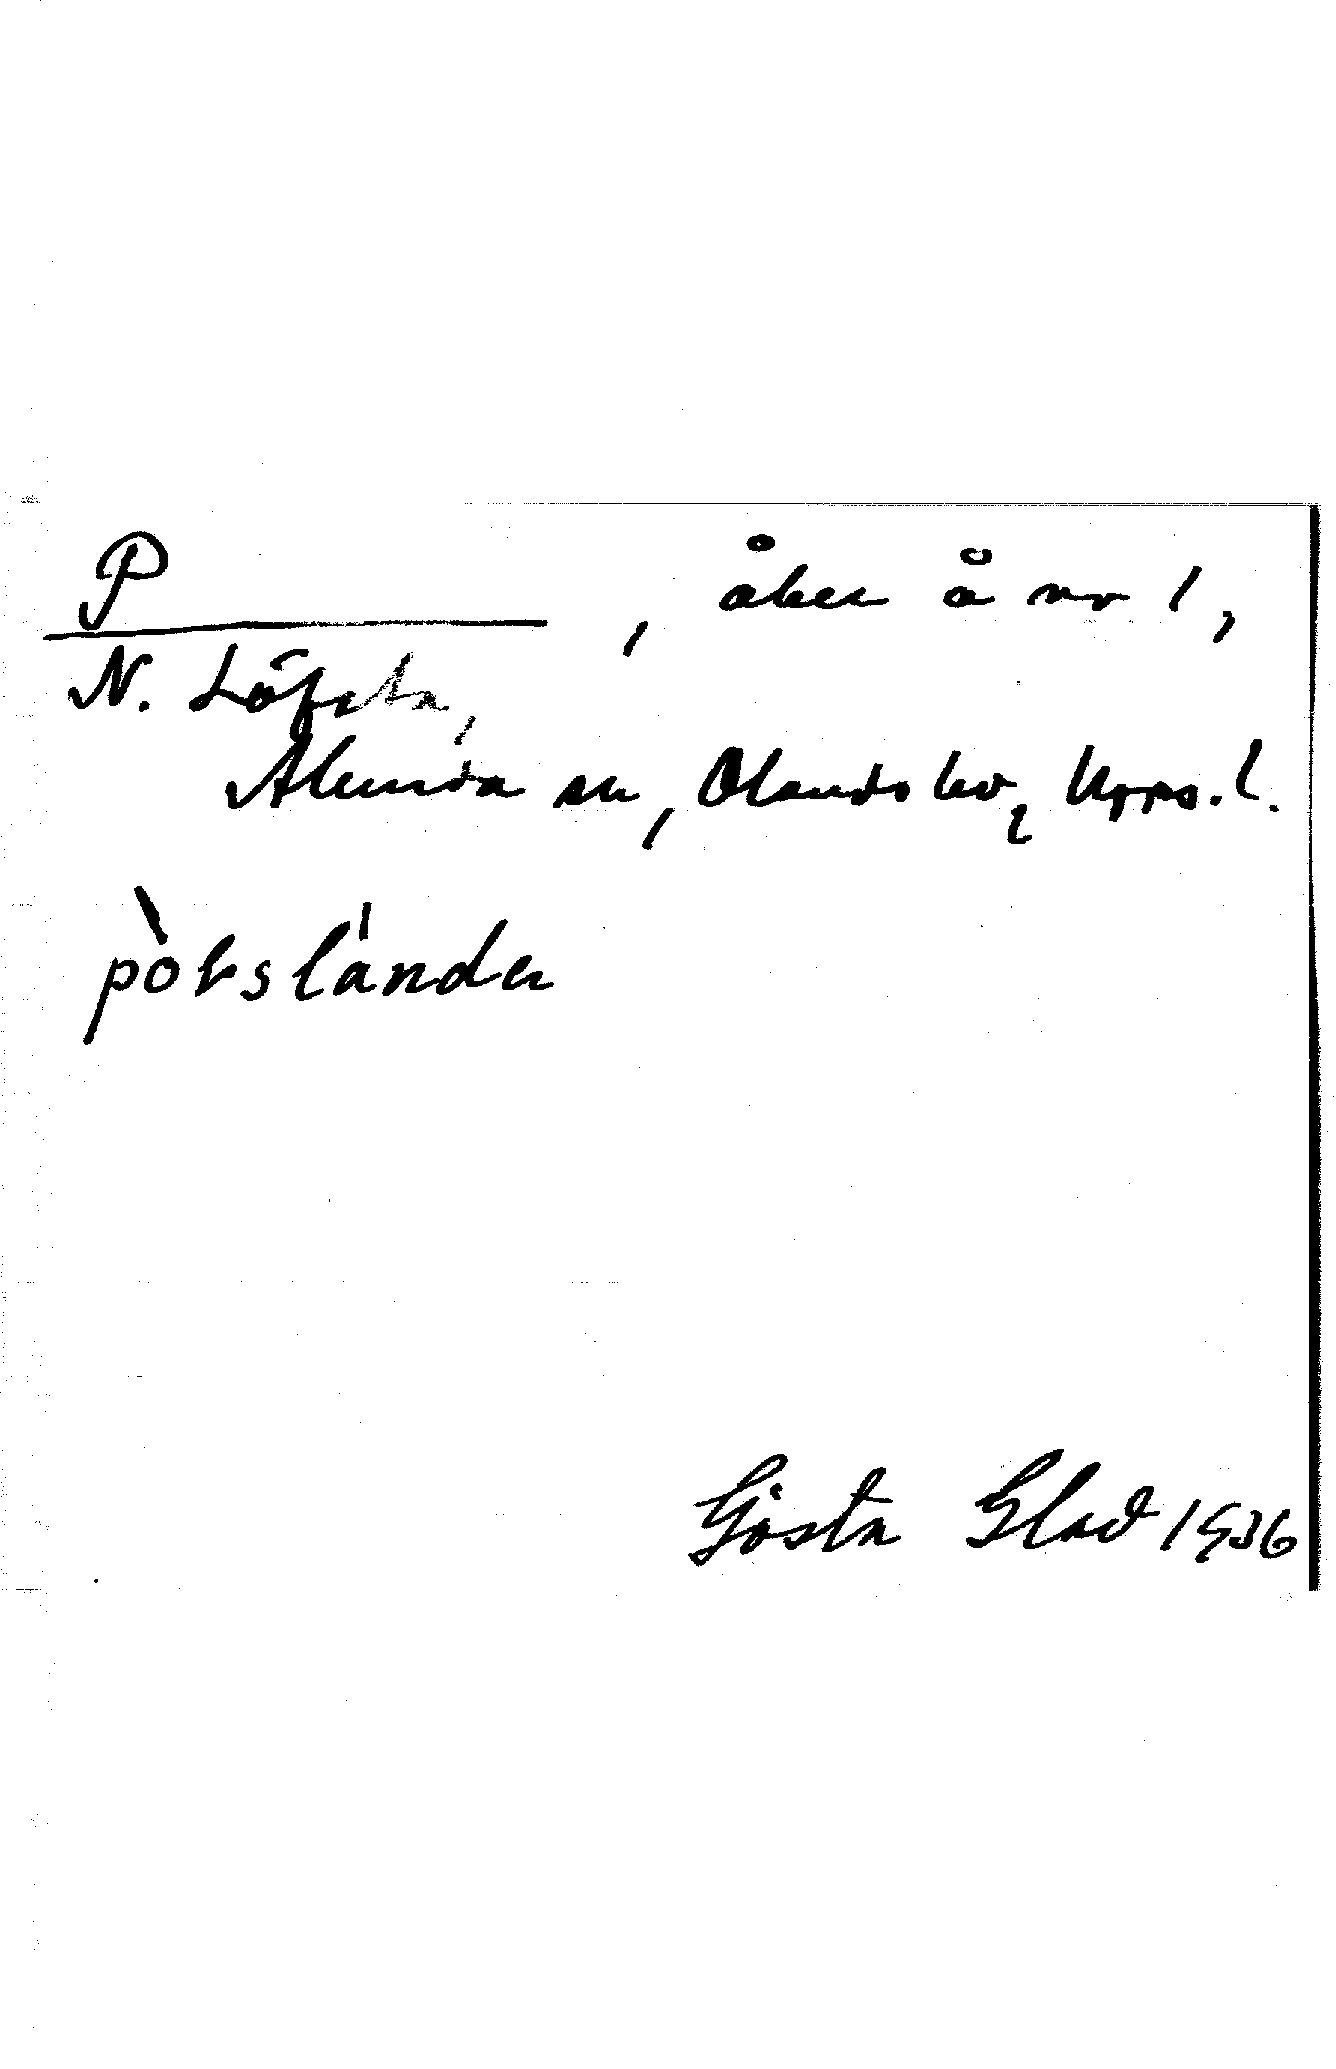 P , åker å nr 1,
N. Löfsta,
Alunda sn, Olands hd, Upps. l.
pòksländer
Gösta Glad 1936